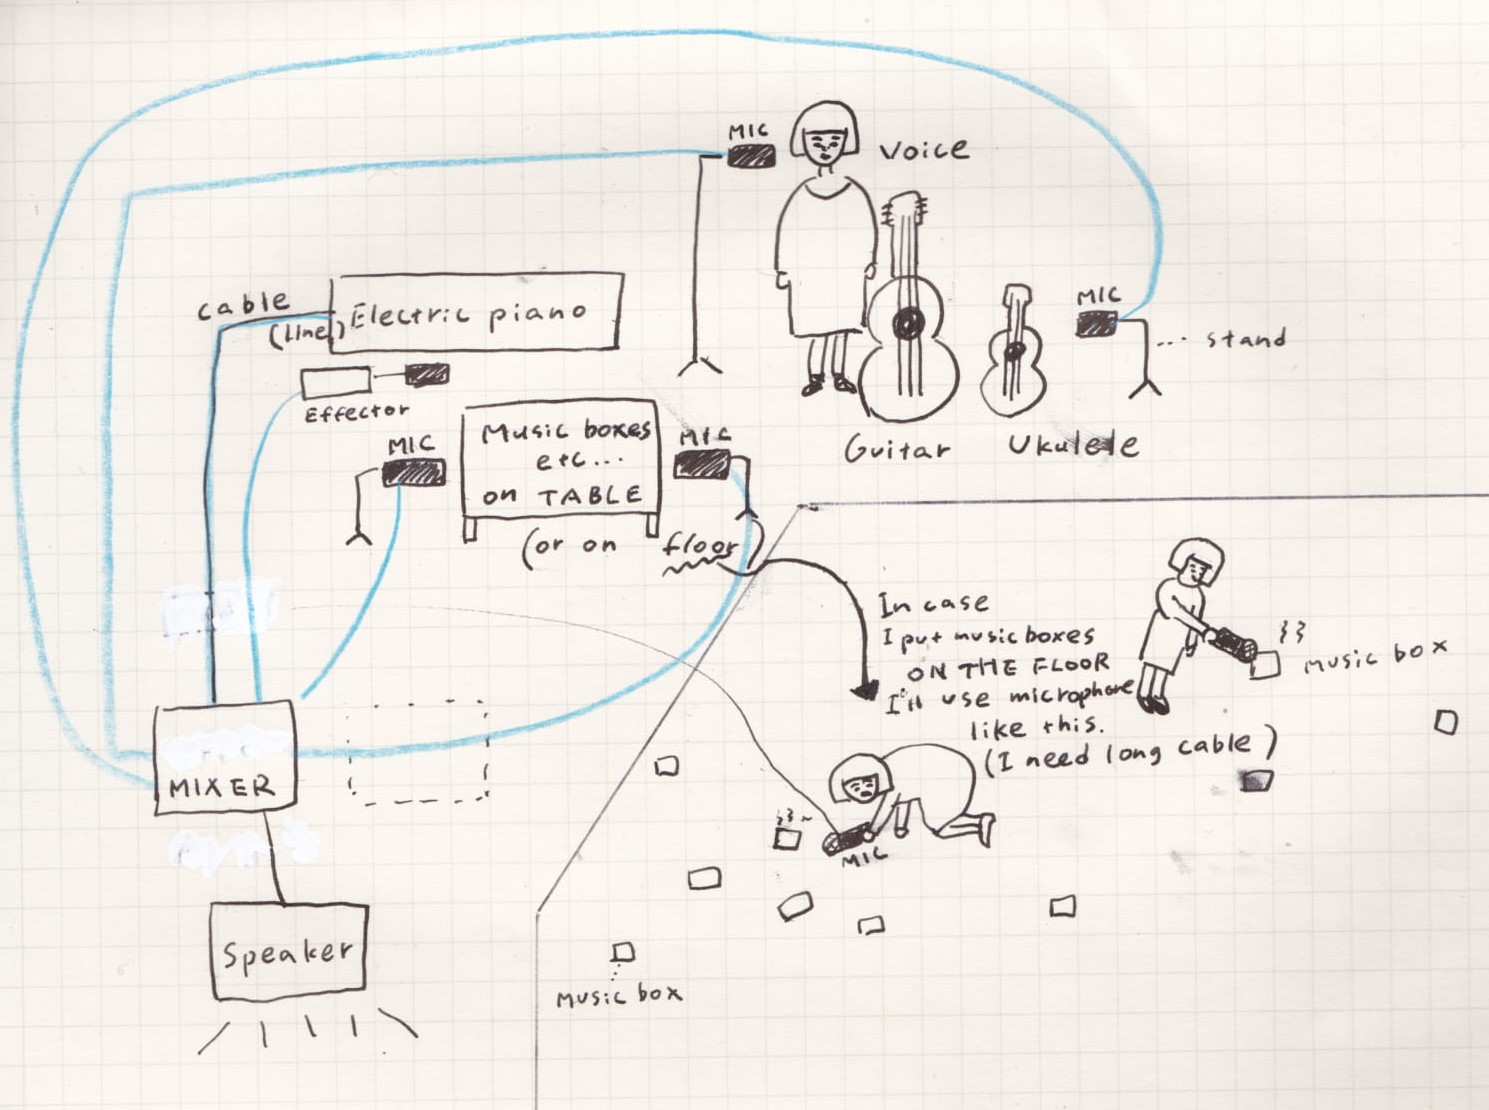 MIC
Voice
cable
(Line)
Electric piano
MIC
... stand
Effector
MIC
Music boxes
etc...
on TABLE
MIC
Guitar
Ukulele
(or on floor
In case
I put music boxes
ON THE FLOOR
I'll use microphone
like this.
(I need long cable)
Music box
MIXER
MIC
Speaker
Music box